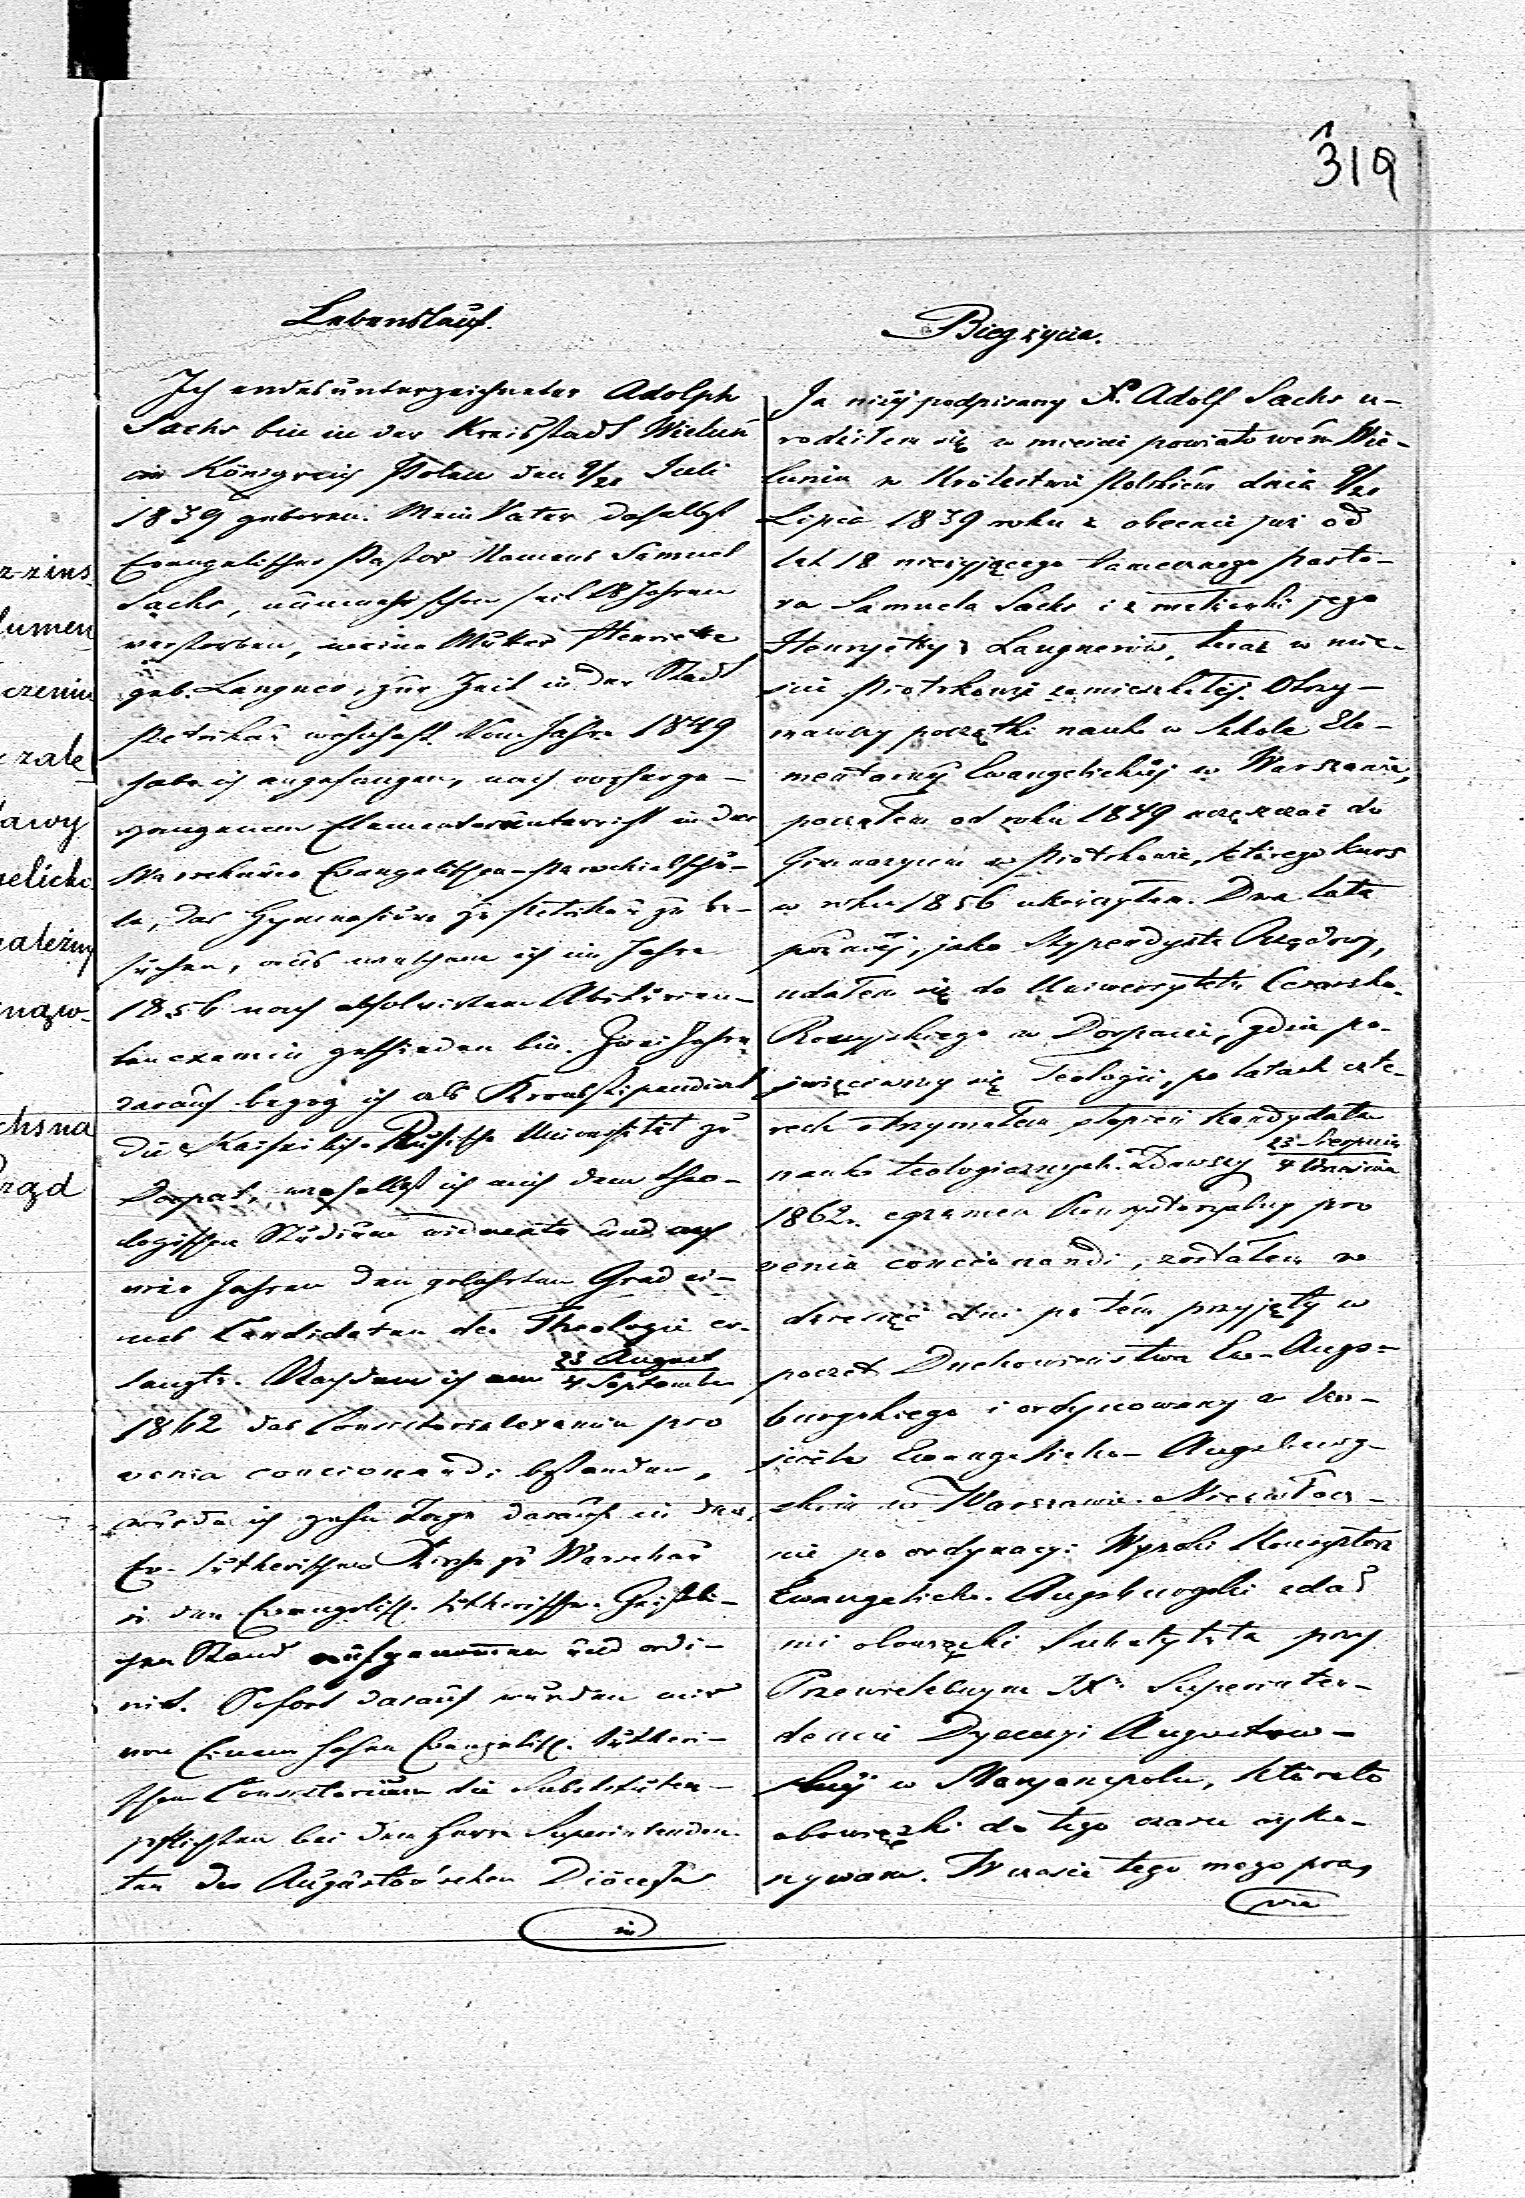 319
Lebenslauf.
Ich endesunterzeichneter Adolph
Sachs bin in der Kreisstadt Wieluń
im Königreich Polen den 9/21 Juli
1839 geboren. Mein Vater daselbst
Evangelischer Pastor Namens Samuel
Sachs, nunmehr schon seit 18 Jahren
verstorben, meine Mutter Henriette
geb. Langner, zur Zeit in der Stadt
Petrikau wohnhaft. Vom Jahre 1849
habe ich angefangen, nach vorherge-
gangenem Elementarunterricht in der
Warschauer Evangelischen-Parochialschu-
le, das Gymnasium zu Petrikau zu be-
suchen, aus welchem ich im Jahre
1856 nach absolvirtem Abiturien-
tenexamen geschieden bin. Zwei Jahre
darauf bezog ich als Kronsstipendiat
die Kaiserliche Russische Universität zu
Dorpat, woselbst ich mich dem theo-
logischen Studium widmete und nach
vier Jahren den gelehrten Grad ei-
nes Candidaten der Theologie er-
langte. Nachdem ich am 23 August
4 September
1862 das Consistorialexamen pro
venia concionandi bestanden,
wurde ich zehn Tage darauf in der
Ev. lutherischen Kirche zu Warschau
in den Evangelisch. lutherischen Geistli-
chen Stand aufgenommen und ordi-
nirt. Sofort darauf wurden mir
von Einem hohen Evangelisch. lutheri-
schen Consistorium die Substituten-
pflichten bei dem Herrn Superintenden-
ten der Augustow'schen Diöcese
in
Bieg życia.
Ja niżej podpisany X. Adolf Sachs u-
rodziłem się w mieście powiatowém Wie-
luniu w Królestwie Polskiém dnia 9/21
Lipca 1839 roku z obecnie już od
lat 18 nieżyjącego tamecznego pasto-
ra Samuela Sachs i z małżonki jego
Henryetty z Langnerów, teraz w mie-
ście Piotrkowie zamieszkałéj. Otrzy-
mawszy początki nauk w Szkole Ele-
mentarnéj Ewangelickiéj w Warszawie,
począłem od roku 1849 uczęszczać do
Gimnazyum w Piotrkowie, którego kurs
w roku 1856 ukończyłem. Dwa lata
późniéj, jako Stypendysta Rządowy,
udałem się do Uniwersytetu Cesarsko-
Rossyjskiego w Dorpacie, gdzie po-
święciwszy się Teologii, po latach czte-
rech otrzymałem stopień Kandydata
nauk teologicznych. Zdawszy 23 Sierpnia
4 Września
1862 r. egzamen Konsystorzalny pro
venia concionandi, zostałem w
dziesięć dni po tém przyjęty w
poczet Duchowieństwa Ew-Augs-
burgskiego i ordynowany w ko-
ściele Ewangelicko-Augsburg-
skim w Warszawie. Niezwłocz-
nie po ordynacyi Wysoki Konsystorz
Ewangelicko-Augsburgski zdał
mi obowiązki Substytuta przy
Przewielebnym JX Superinten-
dencie Dyecezyi Augustow-
skiéj w Maryampolu, któreto
obowiązki do tego czasu wyko-
nywam. W czasie tego mego pra-
wie
z-zins
lumen
czeniu
zale
tawy
gelicko
należny
nązw-
chs na
Prząd